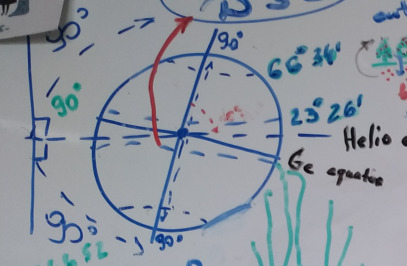 90°
90°
66°34'
90°
23°26'
Helio
Ge equator
90°
90°